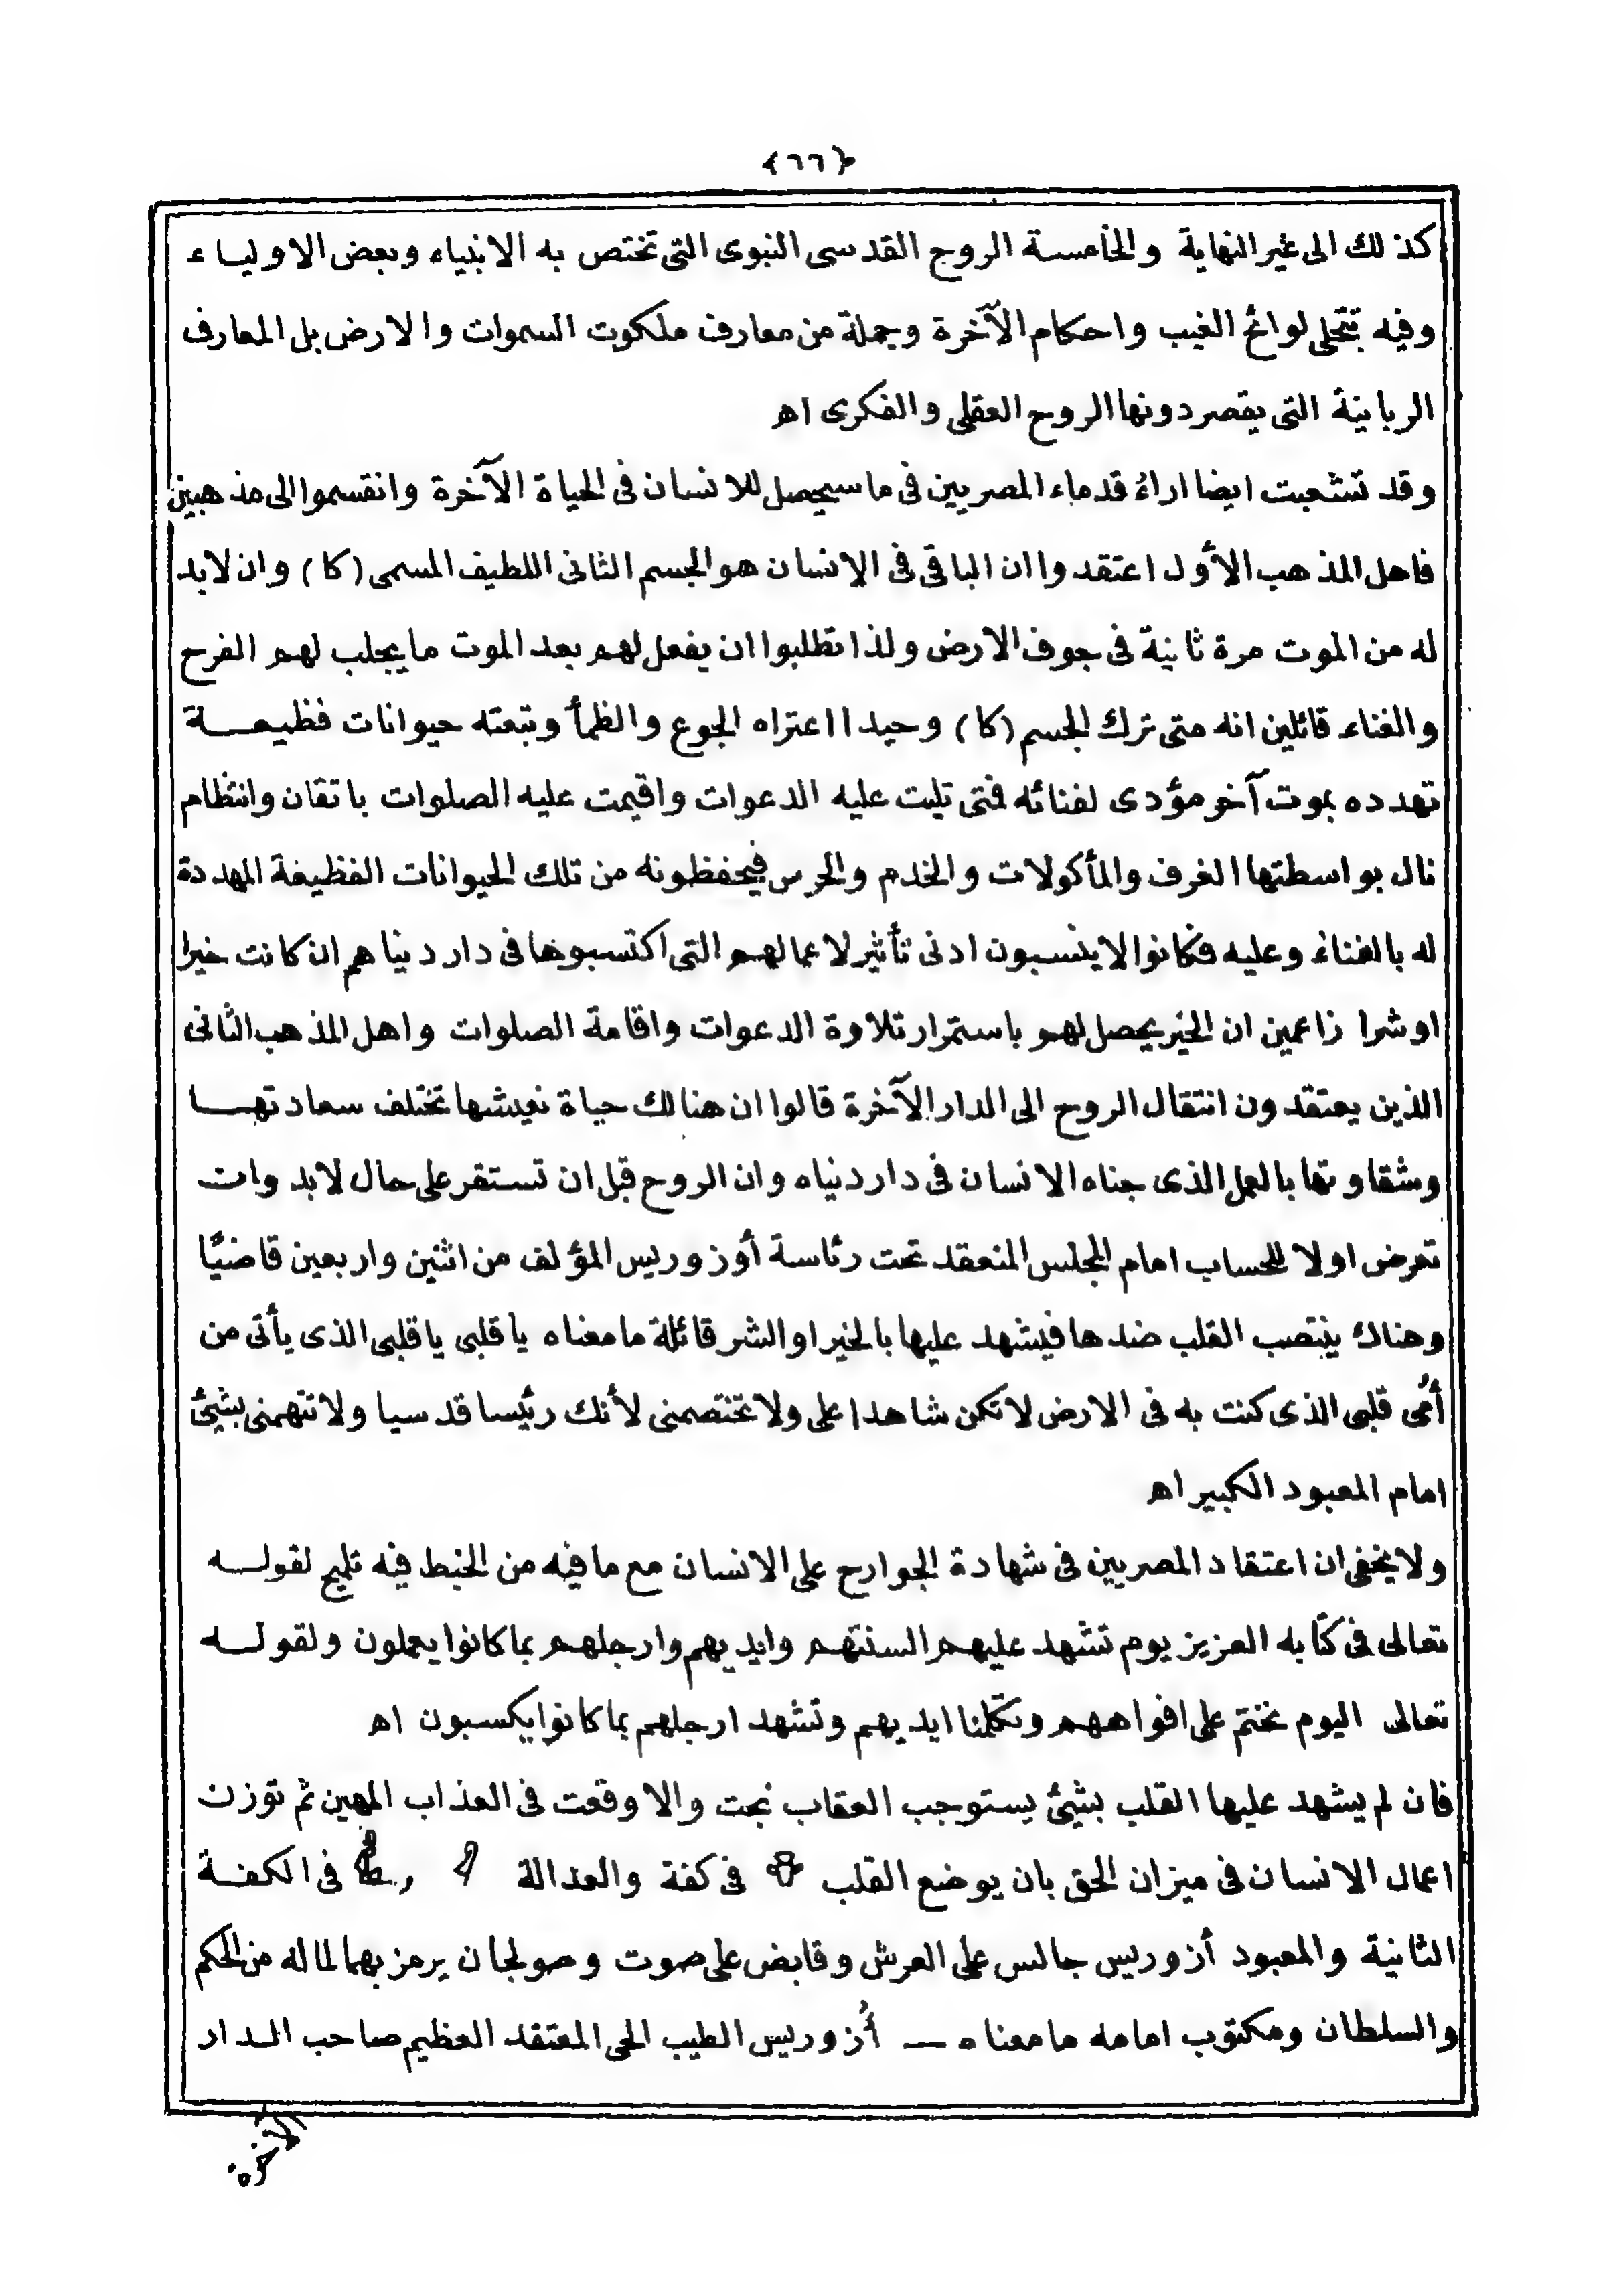 ﴿٦٦﴾
كذلك الى غير النهاية والخامسة الروح القدسى النبوى التى تختص به الانبياء وبعض الاولياء
وفيه تتجلى لوائح الغيب واحكام الآخرة وجملة من معارف ملكوت السموات والارض بل المعارف
الربانية التى يقصر دونها الروح العقلى والفكرى اه
وقد تشعبت ايضا اراء قدماء المصريين فى ما سيحصل للانسان فى الحياة الآخرة وانقسموا الى مذهبين
فاهل المذهب الأول اعتقدوا ان الباقى فى الانسان هو الجسم الثانى اللطيف المسمى (كا) وان لابد
له من الموت مرة ثانية فى جوف الارض ولذا تطلبوا ان يفعل لهم بعد الموت ما يجلب لهم الفرح
والغناء قائلين انه متى ترك الجسم (كا) وحيدا اعتراه الجوع والظمأ وتبعته حيوانات فظيعة
تهدده بموت آخر مؤدى لفنائه فمتى تليت عليه الدعوات واقيمت عليه الصلوات باتقان وانتظام
نال بواسطتها الغرف والمأكولات والخدم والحرس فيحفظونه من تلك الحيوانات الفظيعة المهددة
له بالفناء وعليه فكانوا لا ينسبون ادنى تأثير لاعمالهم التى اكتسبوها فى دار دنياهم ان كانت خيرا
او شرا زاعمين ان الخير يحصل لهم باستمرار تلاوة الدعوات واقامة الصلوات واهل المذهب الثانى
الذين يعتقدون انتقال الروح الى الدار الآخرة قالوا ان هنالك حياة نعيشها تختلف سعادتها
وشقاوتها بالعمل الذى جناه الانسان فى دار دنياه وان الروح قبل ان تستقر على حال لابد وان
تعرض اولا للحساب امام المجلس المنعقد تحت رئاسة أوزوريس المؤلف من اثنين واربعين قاضيًا
وهناك ينتصب القلب ضدها فيشهد عليها بالخير او الشر قائلة ما معناه يا قلبى يا قلبى الذى يأتى من
أمى قلبى الذى كنت به فى الارض لا تكن شاهدا على ولا تختصمنى لأنك رئيسا قدسيا ولا تتهمنى بشئ
امام المعبود الكبير اه
ولا يخفى ان اعتقاد المصريين فى شهادة الجوارح على الانسان مع ما فيه من الخبط فيه تلميح لقوله
تعالى فى كتابه العزيز يوم تشهد عليهم السنتهم وايديهم وارجلهم بما كانوا يعملون ولقوله
تعالى اليوم نختم على افواههم وتكلمنا ايديهم وتشهد ارجلهم بما كانوا يكسبون اه
فان لم يشهد عليها القلب بشئ يستوجب العقاب نجت والا وقعت فى العذاب المهين ثم توزن
اعمال الانسان فى ميزان الحق بان يوضع القلب فى كفة والعدالة فى الكفة
الثانية والمعبود أزوريس جالس على العرش وقابض على صوت وصولجان يرمز بهما لما له من الحكم
والسلطان ومكتوب امامه ما معناه — أزوريس الطيب الحى المعتقد العظيم صاحب الدار
الآخرة